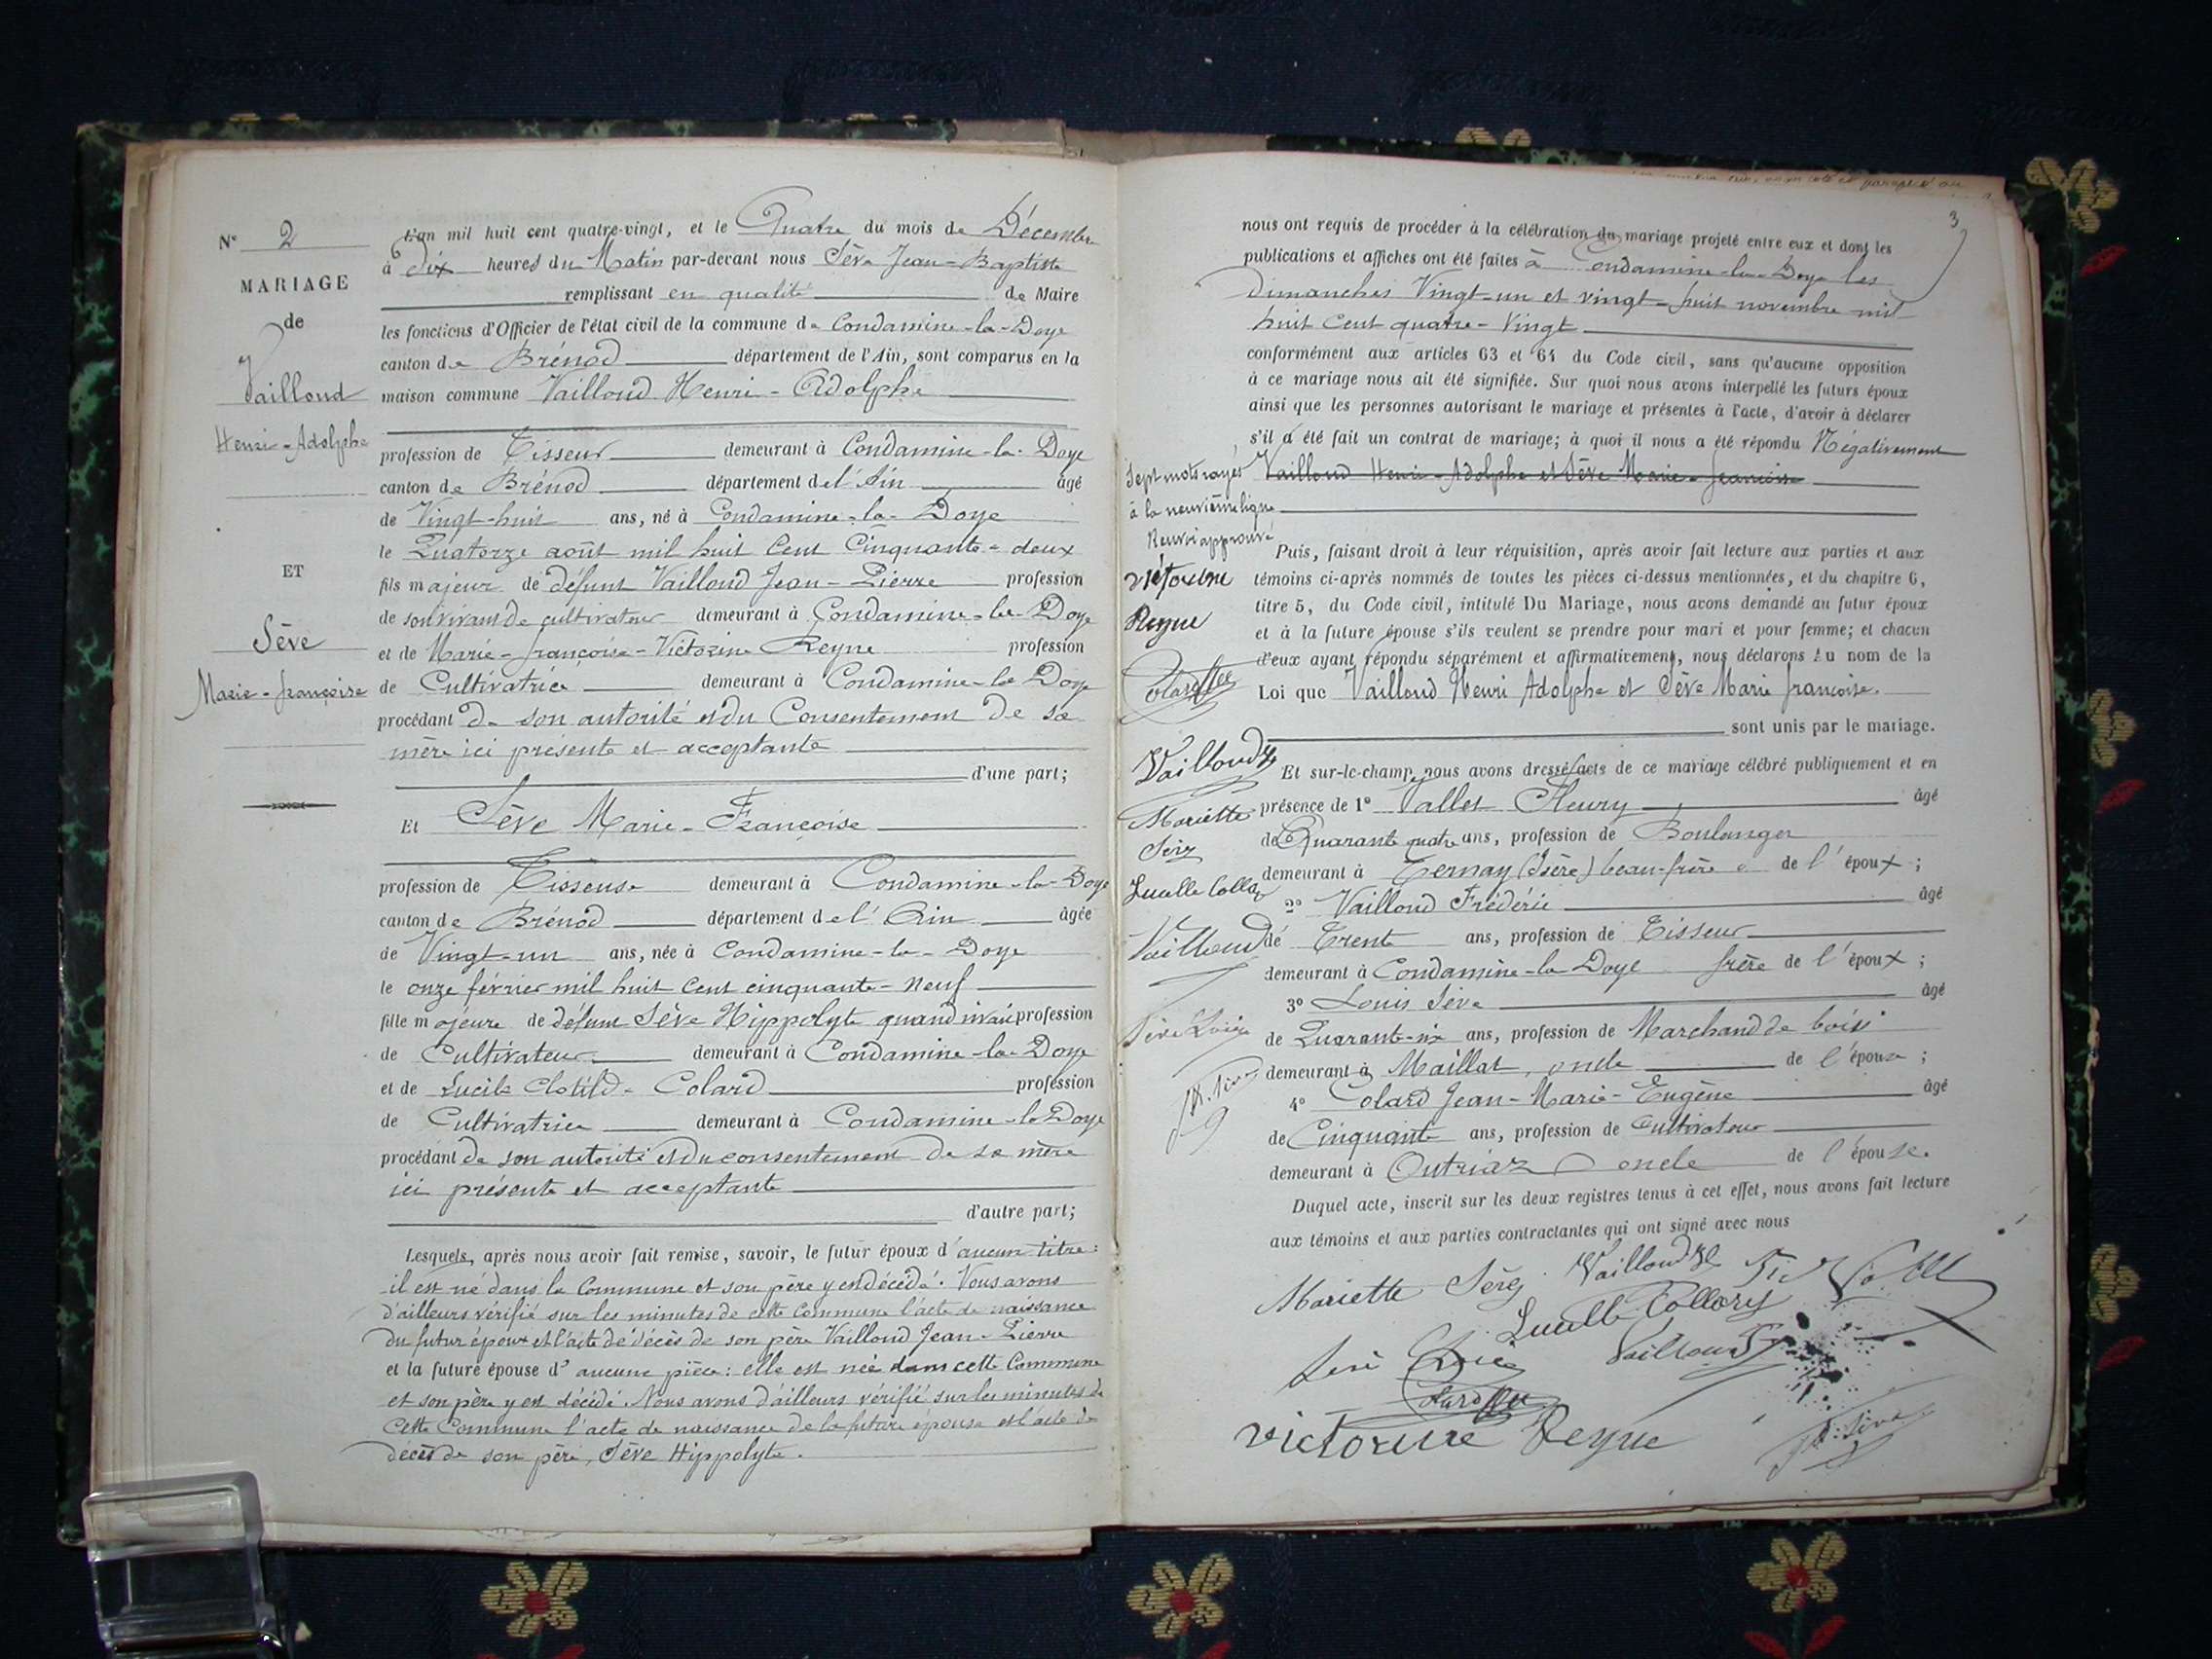 N° 2
MARIAGE
de
Vailloud
Henri-Adolphe
ET
Sève
Marie-françoise
L'an mil huit cent quatre-vingt, et le Quatre du mois de Décembre
à Dix heures du Matin par-devant nous Sève Jean-Baptiste
remplissant en qualité de Maire
les fonctions d'Officier de l'état civil de la commune de Condamine-la-Doye
canton de Brénod département de l'Ain, sont comparus en la
maison commune Vailloud Henri-Adolphe
profession de Tisseur demeurant à Condamine-la-Doye
canton de Brénod département de l'Ain âgé
de Vingt-huit ans, né à Condamine-la-Doye
le Quatorze août mil huit Cent Cinquante-deux
fils majeur de défunt Vailloud Jean-Pierre profession
de son vivant de cultivateur demeurant à Condamine-la-Doye
et de Marie-françoise-Victorine Reyne profession
de Cultivatrice demeurant à Condamine-la Doye
procédant de son autorité et du Consentement de sa
mère ici présente et acceptante
d'une part;
Et Sève Marie-Françoise
profession de Tisseuse demeurant à Condamine-la-Doye
canton de Brénod département de l'Ain âgée
de Vingt-un ans, née à Condamine-la-Doye
le onze février mil huit Cent cinquante-neuf
fille majeure de défunt Sève Hippolyte quand vivait profession
de Cultivateur demeurant à Condamine-la-Doye
et de Lucile Clotilde Colard profession
de Cultivatrice demeurant à Condamine-la Doye
procédant de son autorité et du consentement de sa mère
ici présente et acceptante
d'autre part;
Lesquels, après nous avoir fait remise, savoir, le futur époux d'aucun titre:
il est né dans la Commune et son père y est décédé. Nous avons
d'ailleurs vérifié sur les minutes de cette Commune l'acte de naissance
du futur époux et l'acte de décès de son père Vailloud Jean-Pierre
et la future épouse d'aucune pièce: elle est née dans cette Commune
et son père y est décédé. Nous avons d'ailleurs vérifié sur les minutes de
cette Commune l'acte de naissance de la future épouse et l'acte de
décès de son père, Sève Hippolyte.
3
nous ont requis de procéder à la célébration du mariage projeté entre eux et dont les
publications et affiches ont été faites à Condamine-la-Doye les
dimanches Vingt-un et vingt-huit novembre mil
huit Cent quatre-Vingt
conformément aux articles 63 et 64 du Code civil, sans qu'aucune opposition
à ce mariage nous ait été signifiée. Sur quoi nous avons interpellé les futurs époux
ainsi que les personnes autorisant le mariage et présentes à l'acte, d'avoir à déclarer
s'il a été fait un contrat de mariage; à quoi il nous a été répondu Négativement
Vailloud Henri-Adolphe et Sève Marie-françoise
Sept mots rayés
à la neuvième ligne
Renvoi approuvé
Victorine
Reyne
Vailloud
Mariette
Vailloud
Puis, faisant droit à leur réquisition, après avoir fait lecture aux parties et aux
témoins ci-après nommés de toutes les pièces ci-dessus mentionnées, et du chapitre 6,
titre 5, du Code civil, intitulé Du Mariage, nous avons demandé au futur époux
et à la future épouse s'ils veulent se prendre pour mari et pour femme; et chacun
d'eux ayant répondu séparément et affirmativement, nous déclarons au nom de la
Loi que Vailloud Henri Adolphe et Sève Marie françoise.
sont unis par le mariage.
Et sur-le-champ nous avons dressé acte de ce mariage célébré publiquement et en
présence de 1° Vallet Fleury âgé
de Quarante quatre ans, profession de Boulanger
demeurant à Ternay (Isère) beau-frère de l'époux;
2° Vailloud Frédéric âgé
de Trente ans, profession de Tisseur
demeurant à Condamine-la Doye frère de l'époux;
3° Louis Sève âgé
de Quarante-six ans, profession de Marchand de bois
demeurant à Maillat, oncle de l'épouse;
4° Colard Jean-Marie-Eugène âgé
de Cinquante ans, profession de Cultivateur
demeurant à Outriaz oncle de l'épouse.
Duquel acte, inscrit sur les deux registres tenus à cet effet, nous avons fait lecture
aux témoins et aux parties contractantes qui ont signé avec nous
Mariette Vailloud
Vailloud
Victorine Reyne